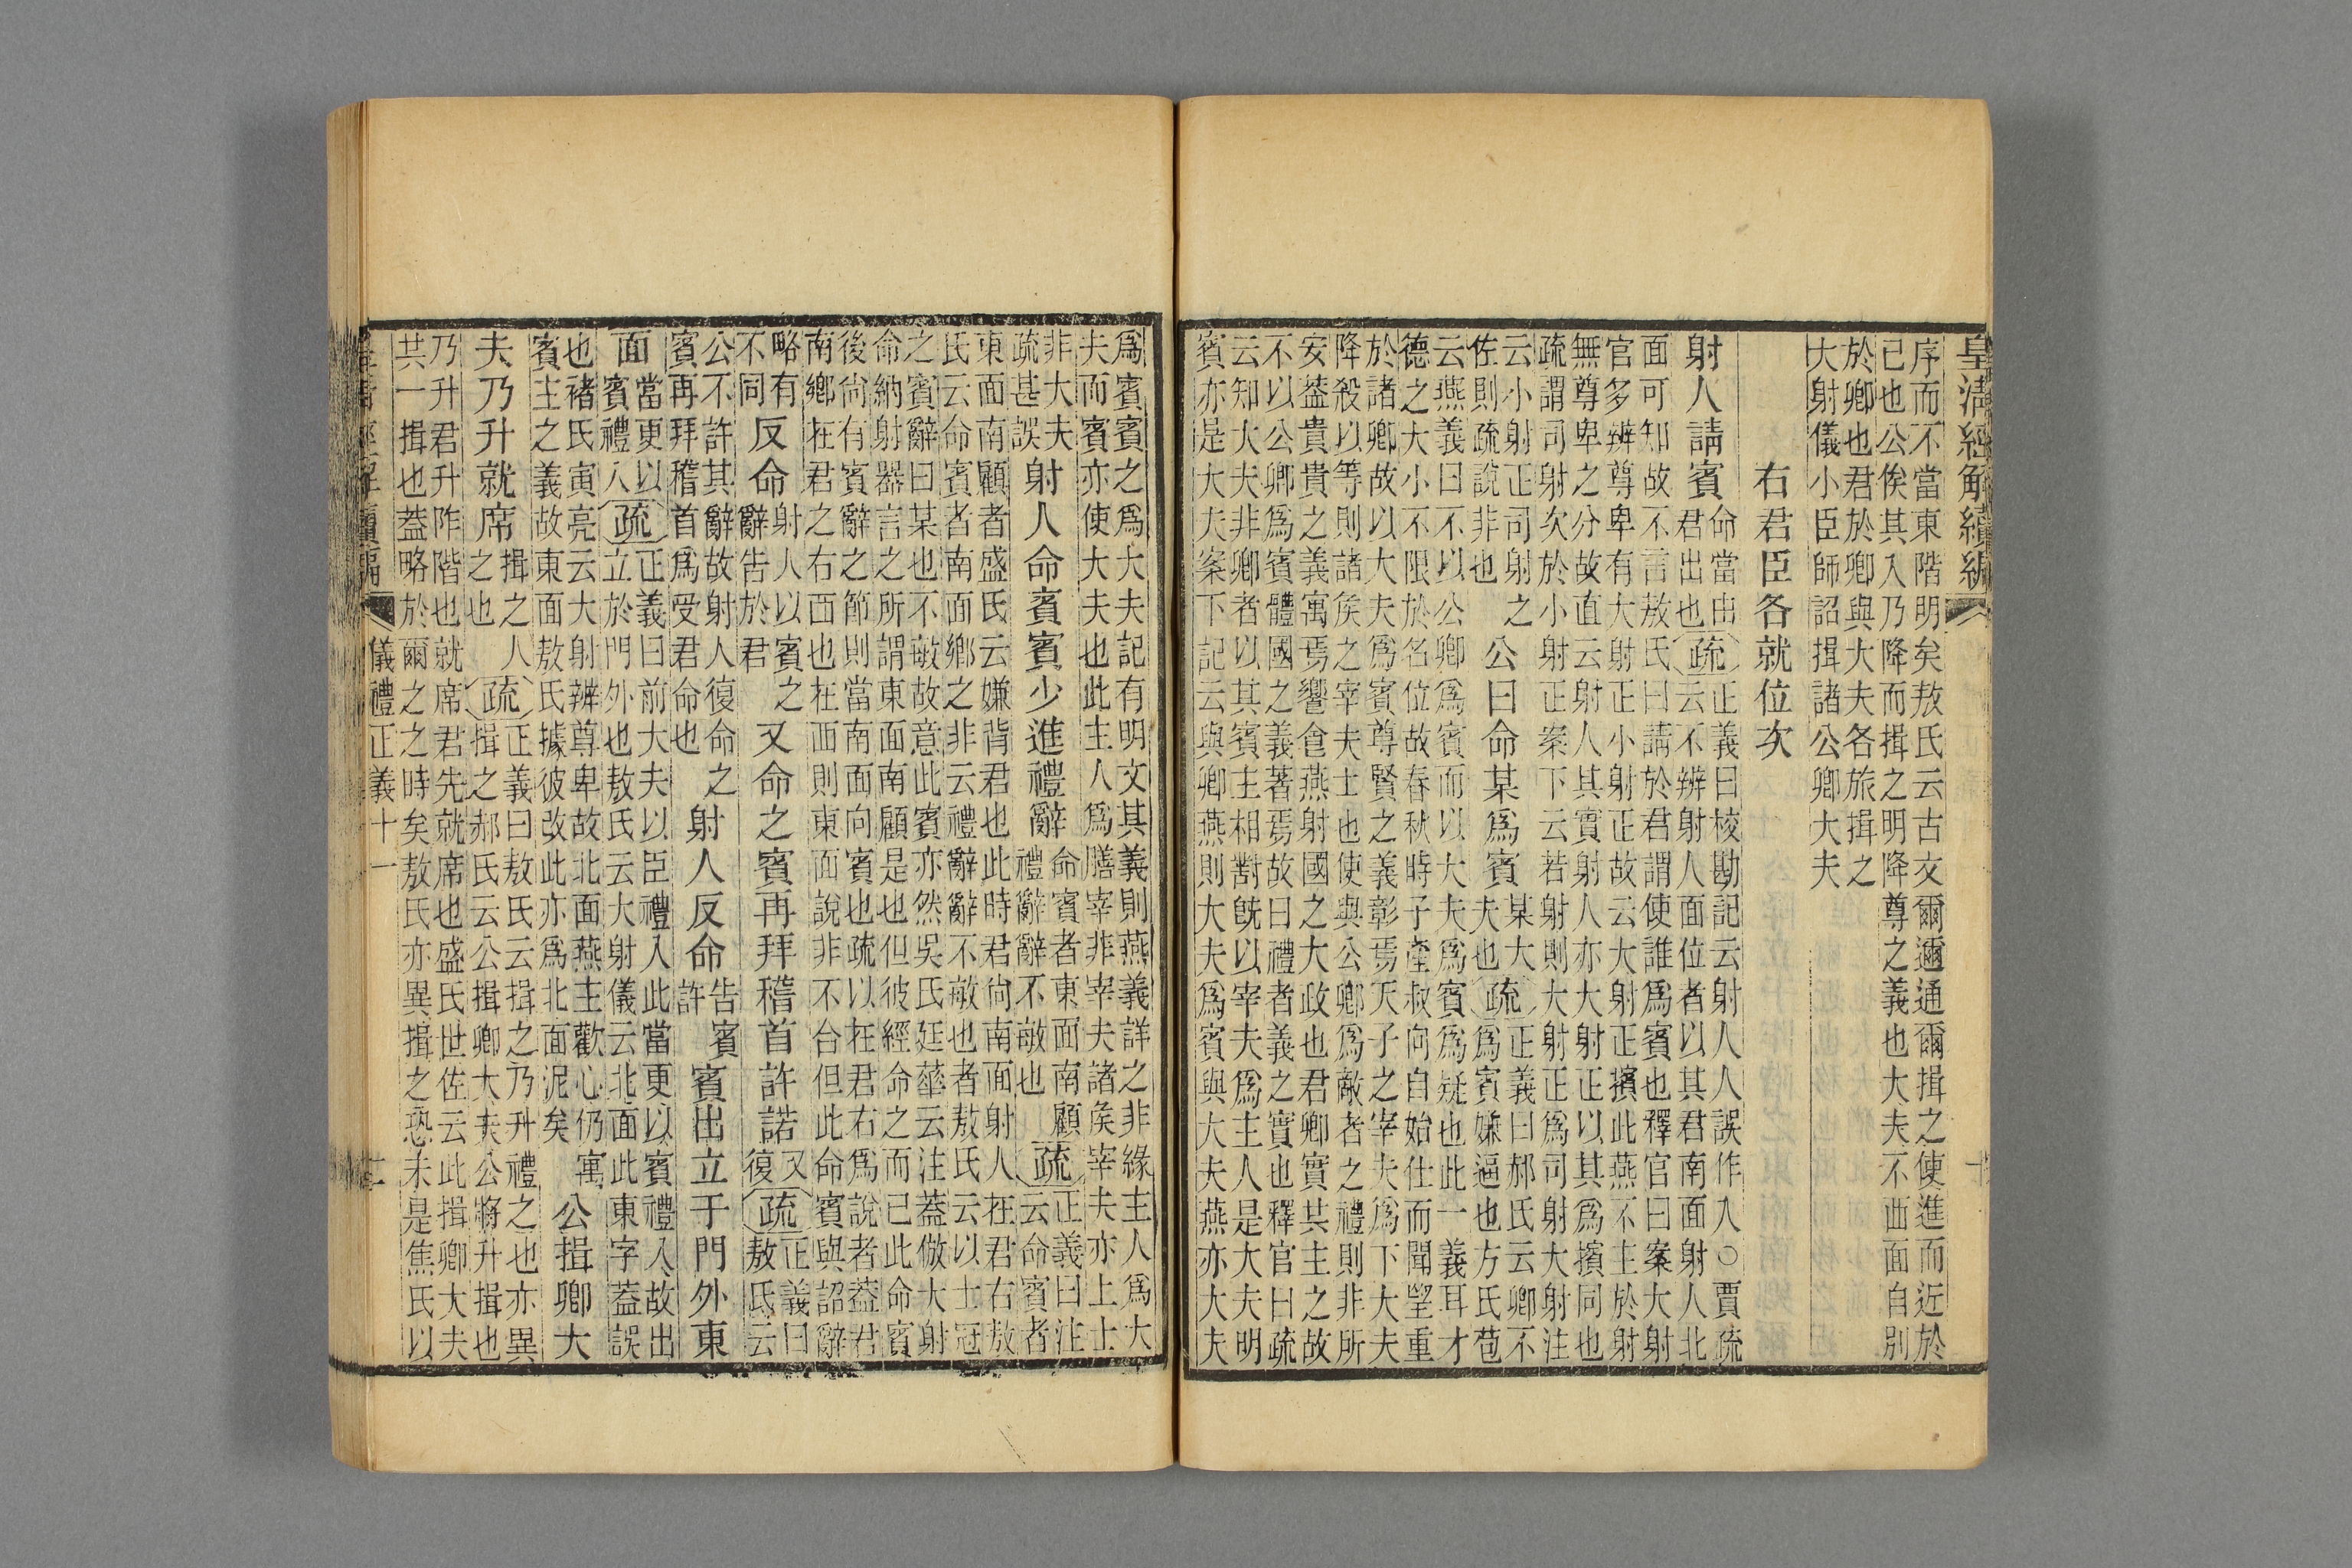 皇清經解續編
序而不當東階明矣敖氏云古文爾邇通爾揖之使進而近於
已也公俟其入乃降而揖之明降尊之義也大夫不西面自別
於卿也君於卿與大夫各旅揖之
大射儀小臣師詔揖諸公卿大夫
右君臣各就位次
射人請賓命當出君出也疏正義曰校勘記云射人人誤作入○賈疏
云不辨射人面位者以其君南面射人北
面可知故不言敖氏曰請於君謂使誰爲賓也釋官曰案大射
官多辨尊卑有大射正小射正故云大射正擯此燕不主於射
無尊卑之分故直云射人其實射人亦大射正以其爲擯同也
疏謂司射次於小射正案下云若射則大射正爲司射大射注
云小射正司射之
佐則疏說非也公曰命某爲賓某大夫也疏正義曰郝氏云卿不
爲賓嫌逼也方氏苞
云燕義曰不以公卿爲賓而以大夫爲賓爲疑也此一義耳才
德之大小不限於名位故春秋時子產叔向自始仕而聞望重
於諸卿故以大夫爲賓尊賢之義彰焉天子之宰夫爲下大夫
降殺以等則諸侯之宰夫士也使與公卿爲敵者之禮則非所
安葢貴貴之義寓焉饗食燕射國之大政也君卿實共主之故
不以公卿爲賓體國之義著焉故曰禮者義之實也釋官曰疏
云知大夫非卿者以其賓主相對旣以宰夫爲主人是大夫明
賓亦是大夫案下記云與卿燕則大夫爲賓與大夫燕亦大夫
爲賓賓之爲大夫記有明文其義則燕義詳之非緣主人爲大
夫而賓亦使大夫也此主人爲膳宰非宰夫諸侯宰夫亦上士
非大夫
疏甚誤射人命賓賓少進禮辭命賓者東面南顧
禮辭辭不敏也疏正義曰注
云命賓者
東面南顧者盛氏云嫌背君也此時君尙南面射人在君右敖
氏云命賓者南面鄉之非云禮辭辭不敏也者敖氏云以士冠
之賓辭曰某也不敏故意此賓亦然吳氏廷華云注葢倣大射
命納射器言之所謂東面南顧是也但彼經命之而已此命賓
後尙有賓辭之節則當南面向賓也疏以在君右爲說者葢君
南鄉在君之右西也在西則東面說非不合但此命賓與詔辭
略有
不同反命射人以賓之
辭告於君又命之賓再拜稽首許諾又
復疏正義曰
敖氏云
公不許其辭故射人復命之
賓再拜稽首爲受君命也射人反命告賓
許賓出立于門外東
面當更以
賓禮入疏正義曰前大夫以臣禮入此當更以賓禮入故出
立於門外也敖氏云大射儀云北面此東字葢誤
也褚氏寅亮云大射辨尊卑故北面燕主歡心仍寓
賓主之義故東面敖氏據彼改此亦爲北面泥矣公揖卿大
夫乃升就席揖之人
之也疏正義曰敖氏云揖之乃升禮之也亦異
揖之郝氏云公揖卿大夫公將升揖也
乃升君升阼階也就席君先就席也盛氏世佐云此揖卿大夫
共一揖也葢略於爾之之時矣敖氏亦異揖之恐未是焦氏以
儀禮正義十一